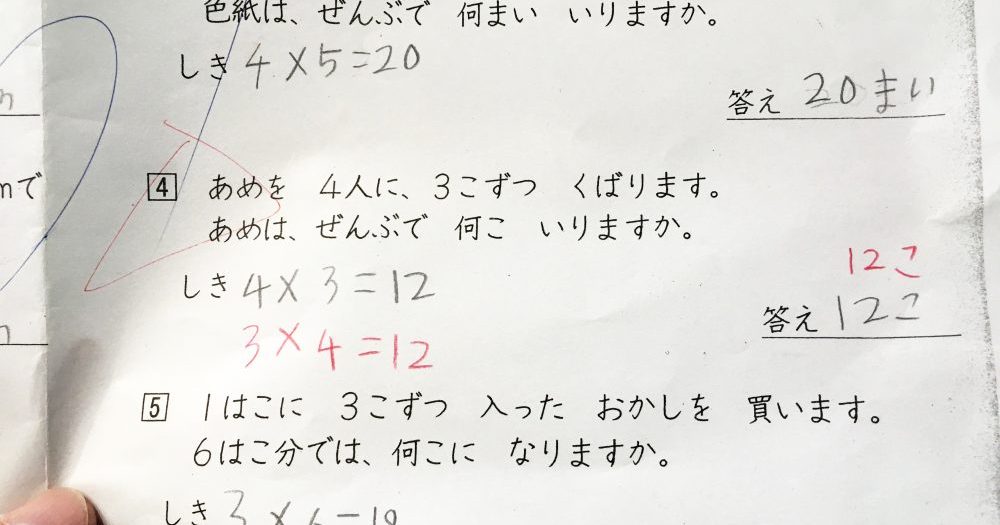 色紙は、ぜんぶで 何まい いりますか。
しき 4×5=20
答え 20まい
mで
4 あめを 4人に、3こずつ くばります。
あめは、ぜんぶで 何こ いりますか。
しき 4×3=12
12こ
答え 12こ
3×4=12
5 1はこに 3こずつ 入った おかしを 買います。
6はこ分では、何こに なりますか。
しき 3×6=18